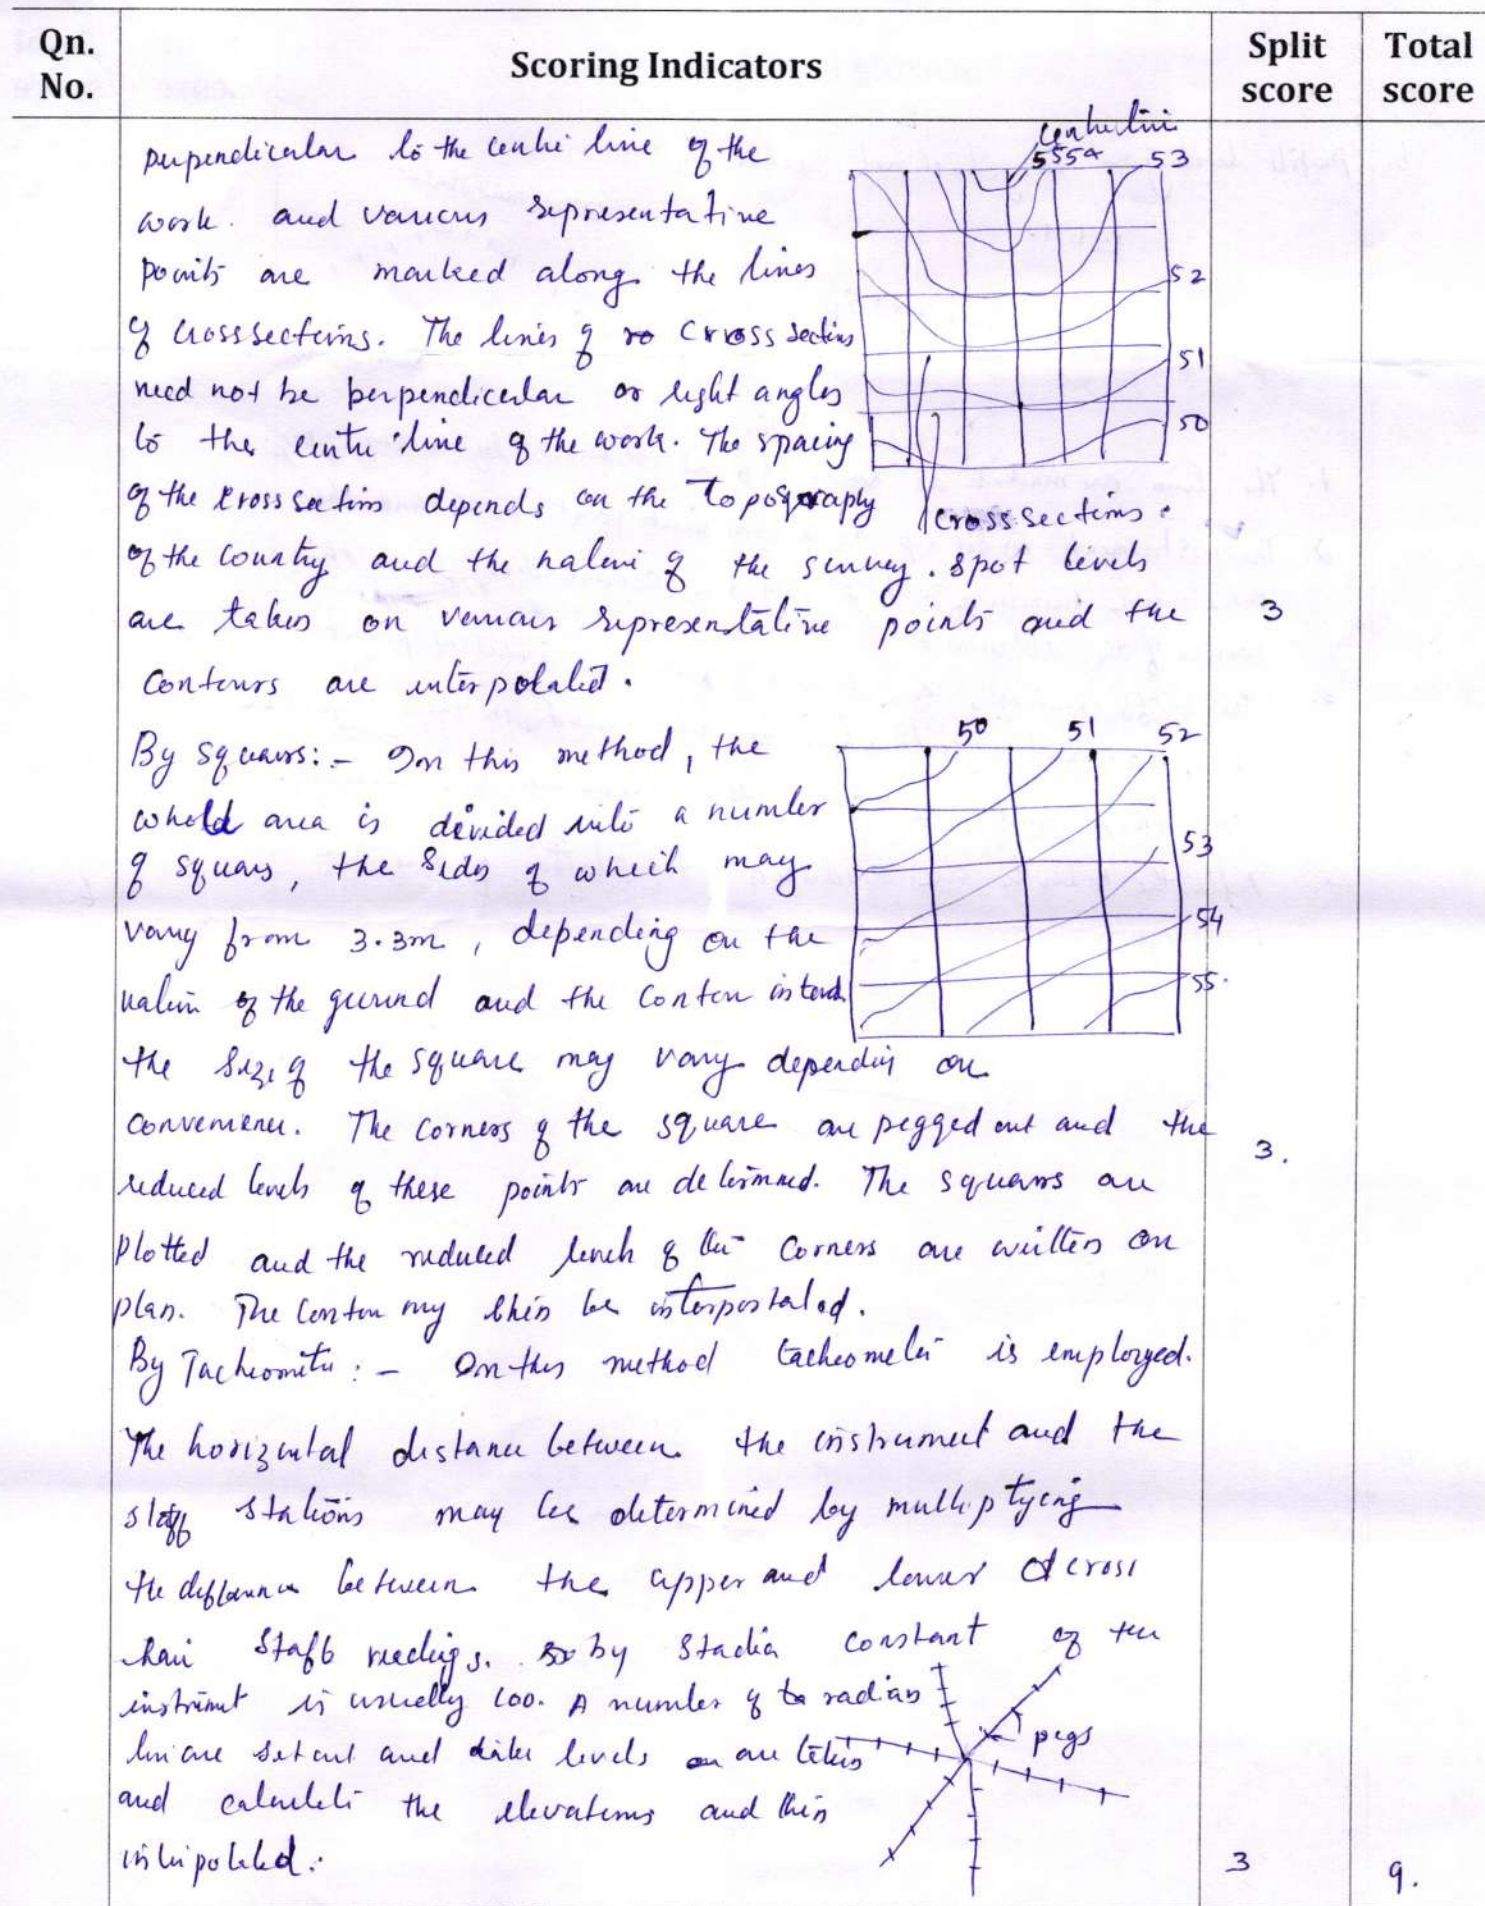 Qn. No. Scoring Indicators Split score Total score
perpendicular to the centre line of the
work. and various representative
points are marked along the lines
of crosssections. The lines of cross sections
need not be perpendicular or right angles
to the centre line of the work. The spacing
of the cross sections depends on the Topography
of the country and the nature of the survey. spot levels
are taken on various representative points and the
contours are interpolated.
centreline
55 54 53
52
51
50
cross sections.
3
By squares:- In this method, the
whole area is divided into a number
of squares, the sides of which may
vary from 3.3m, depending on the
nature of the ground and the contour
the size of the square may vary depending on
convenience. The corners of the square are pegged out and the
reduced levels of these points are determined. The squares are
plotted and the reduced levels of the corners are written on
plan. The contour may then be interpostalod.
50 51 52
53
54
55.
3.
By Tacheometer:- In this method tacheometer is employed.
The horizontal distance between the instrument and the
staff stations may be determined by multiplying
the difference between the upper and lower cross
hair staff readings. by stadia constant of the
instrument is usually 100. A number of radian
line are set out and levels are taken
and calculate the elevations and then
interpolated.
pegs
3 9.